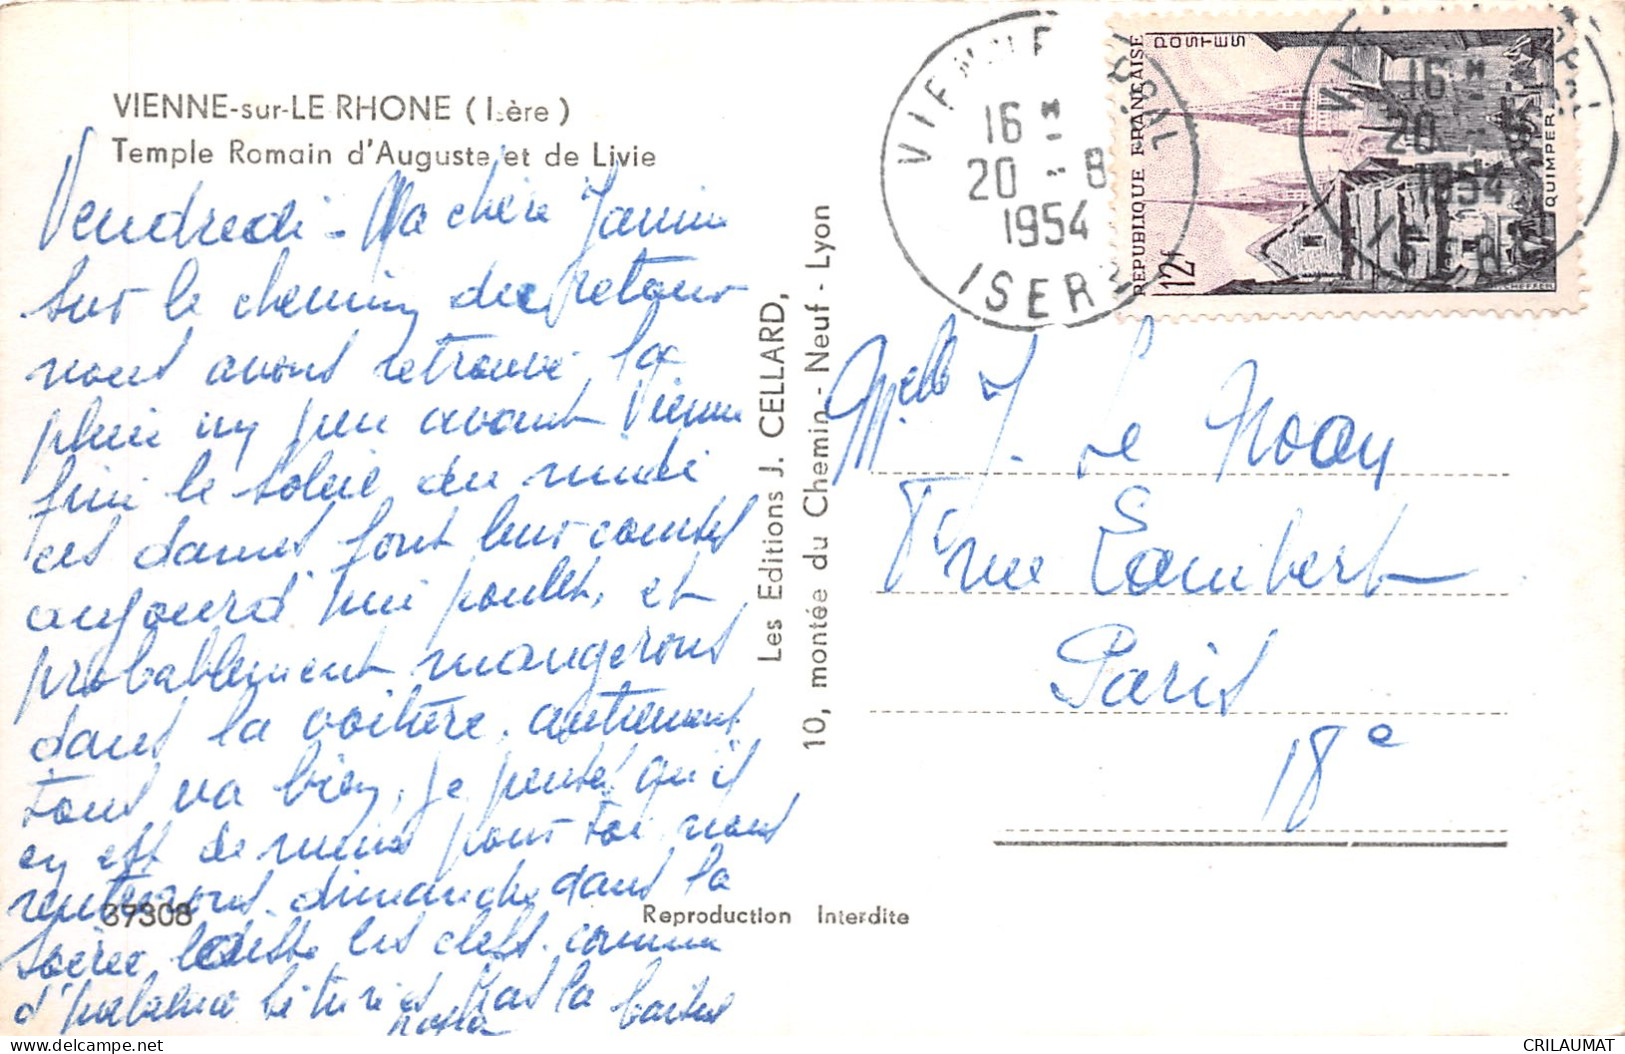 VIENNE-sur-LE RHONE (Isère)
Temple Romain d'Auguste et de Livie
Vendredi - Ma chère Janine
sur le chemin du retour
nous avons retrouvé la
pluie un peu avant Vienne
fini le soleil du midi
ces dames font leur courses
aujourd'hui poulet, et
probablement mangerons
dans la voiture. autrement
tout va bien, je penses qu'il
en est de même pour toi nous
rentrerons dimanche dans la
soirée laisse les clefs comme
d'habitude si tu n'es pas la
bons baisers
37308
Reproduction Interdite
Les Editions J. CELLARD,
10, montée du Chemin-Neuf - Lyon
VIENNE
16 H
20 -8
1954
ISERE
REPUBLIQUE FRANÇAISE
POSTES
12f
QUIMPER
CHEFFER
VIENNE
16 H
20 -8
1954
ISERE
Melle J. Le Noay
rue Lambert
Paris
18e
CRILAUMAT